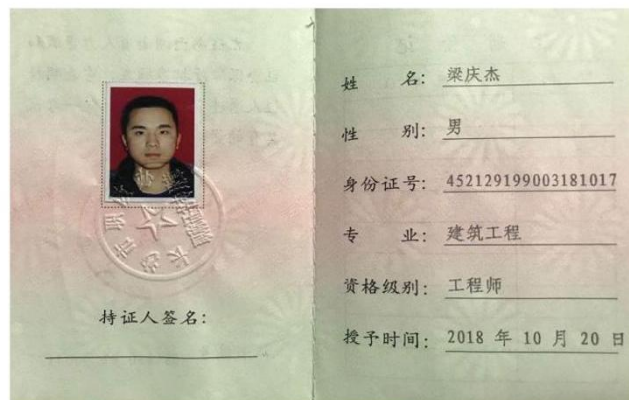 持证人签名：
姓 名：梁庆杰
性 别：男
身份证号：452129199003181017
专 业：建筑工程
资格级别：工程师
授予时间：2018 年 10 月 20 日